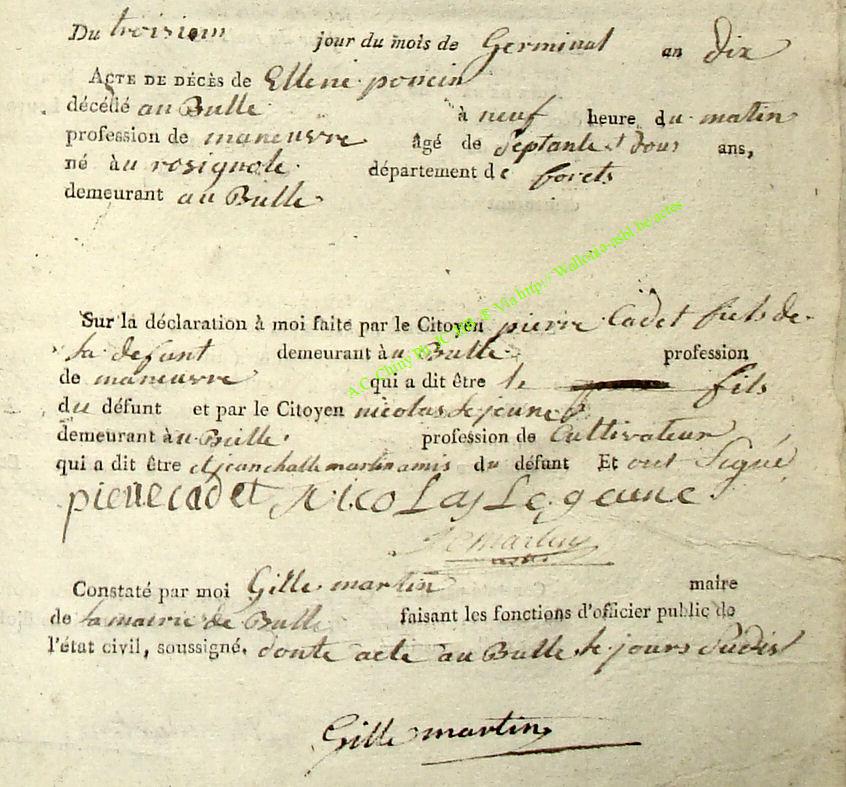 Du troisieme jour du mois de Germinal an dix
ACTE DE DÉCÈS de Ellene poncin
décédé au Bulle à neuf heure du matin
profession de maneuvre âgé de septante et dous ans,
né àu rosignole département de forets
demeurant au Bulle
Sur la déclaration à moi faite par le Citoyen pierre Cadet fiels de
la defunt demeurant àu Bulle profession
de maneuvre qui a dit être le fils
du défunt et par le Citoyen nicolas lejeune
demeurant àu Bulle profession de Cultivateur
qui a dit être et jean martin amis du défunt Et ont Signé
pierre cadet Nicolas Legeune
martin
Constaté par moi Gille martin maire
de la mairie de Bulle faisant les fonctions d'oficier public de
l'état civil, soussigné. donte acte au Bulle le jours Sudit
Gille martin
A.C. Chiny Via http://Wallonia-asbl.be/actes